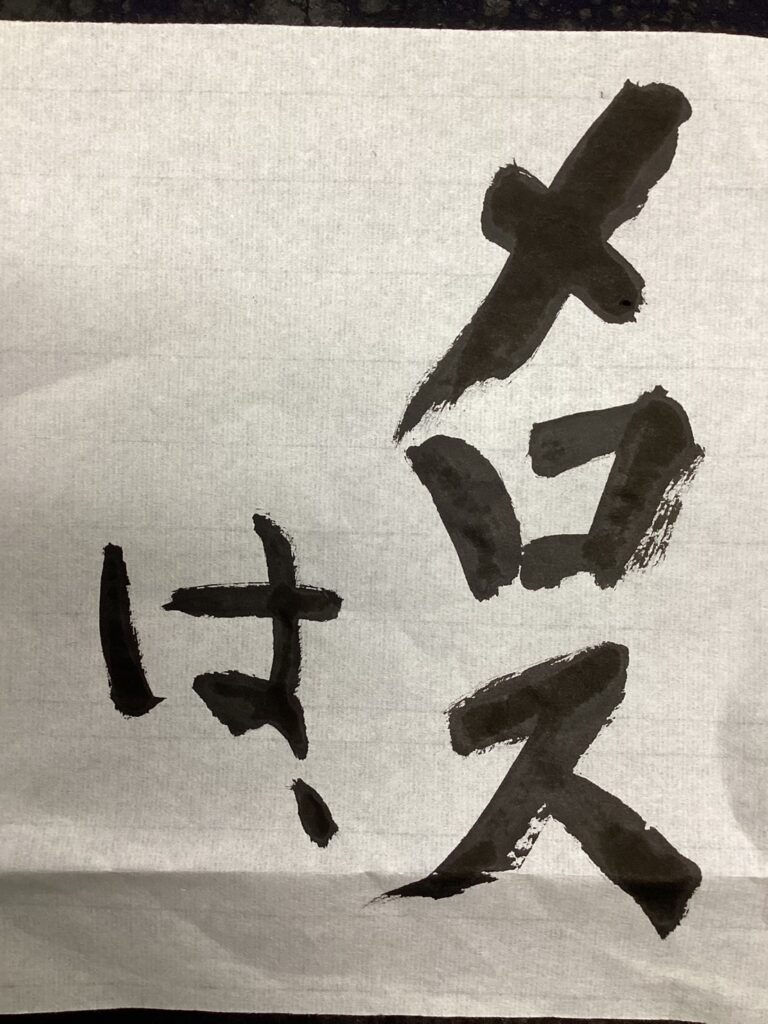 メロス
は、